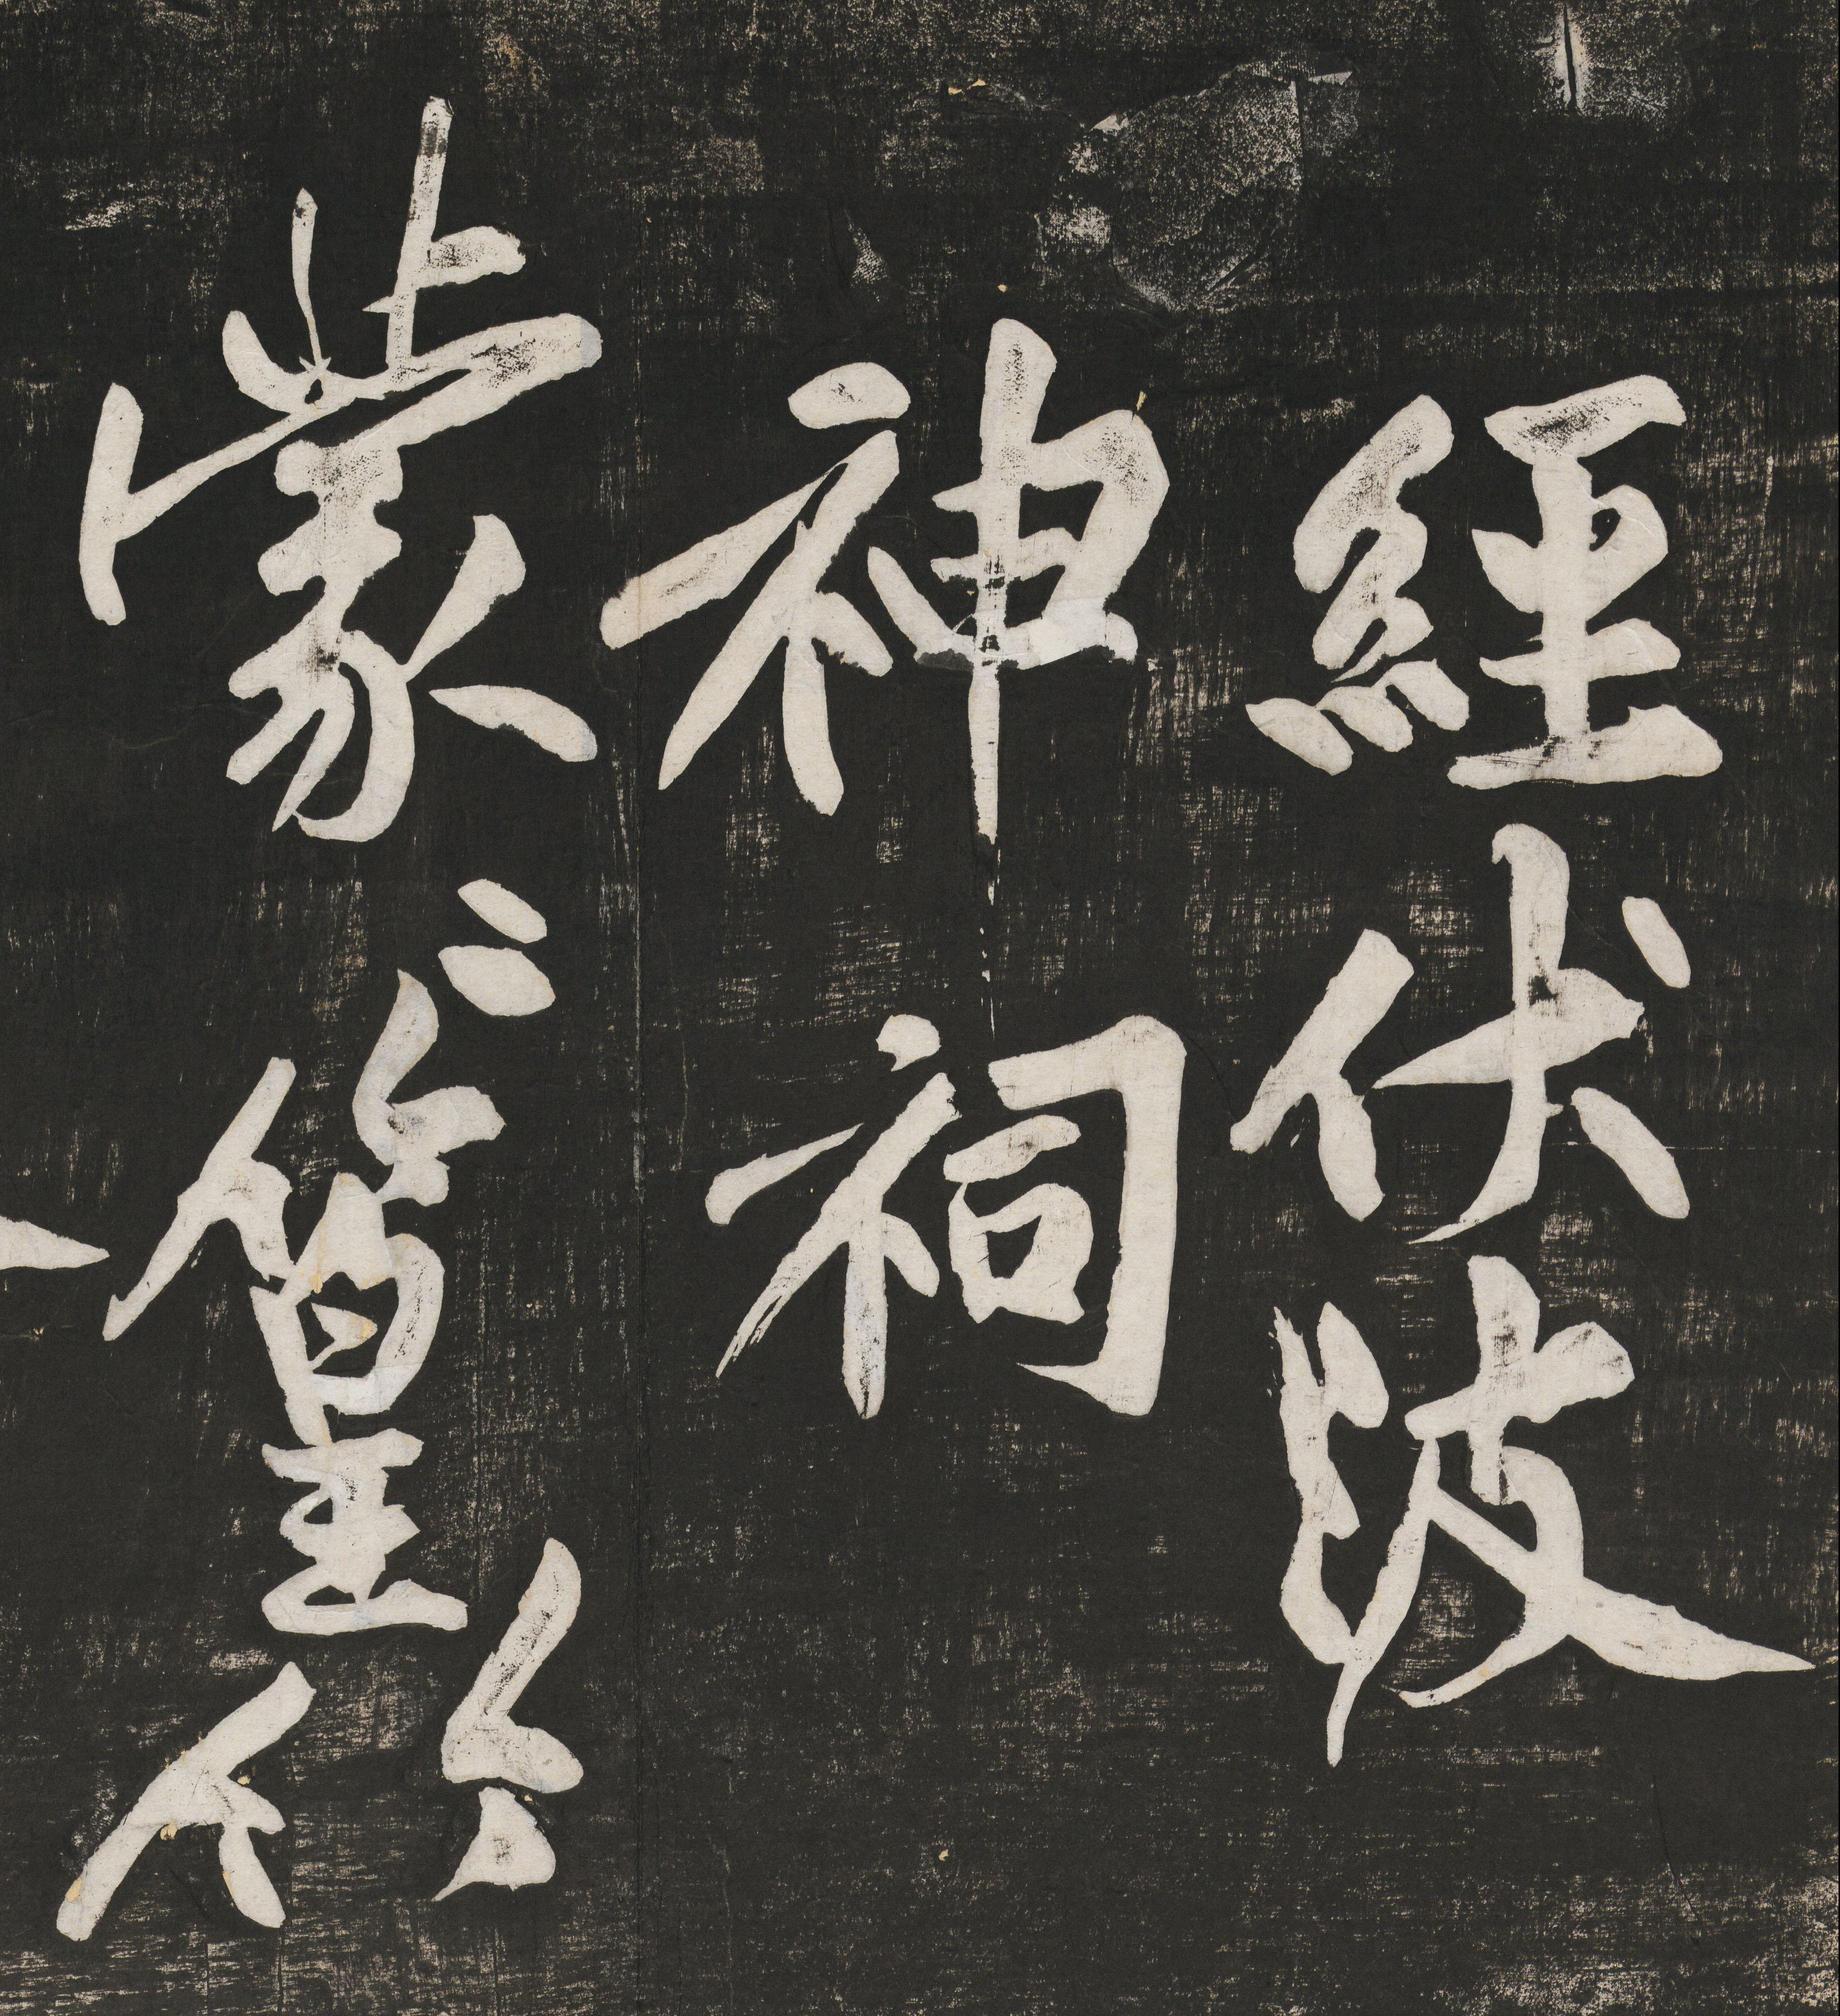 經伏波
神祠
蒙〻篁竹